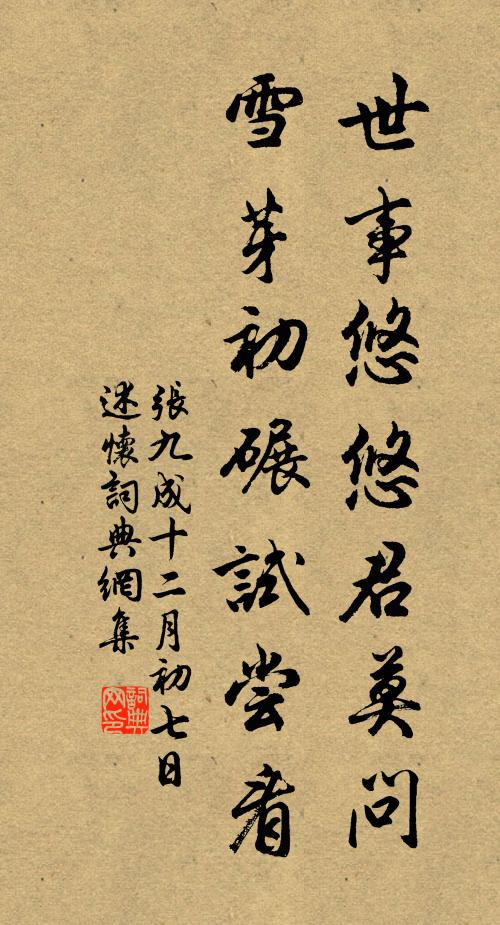 世事悠悠君莫問
雪芽初碾試尝看
張九成十二月初七日
述懷詞典網集
詞典网印